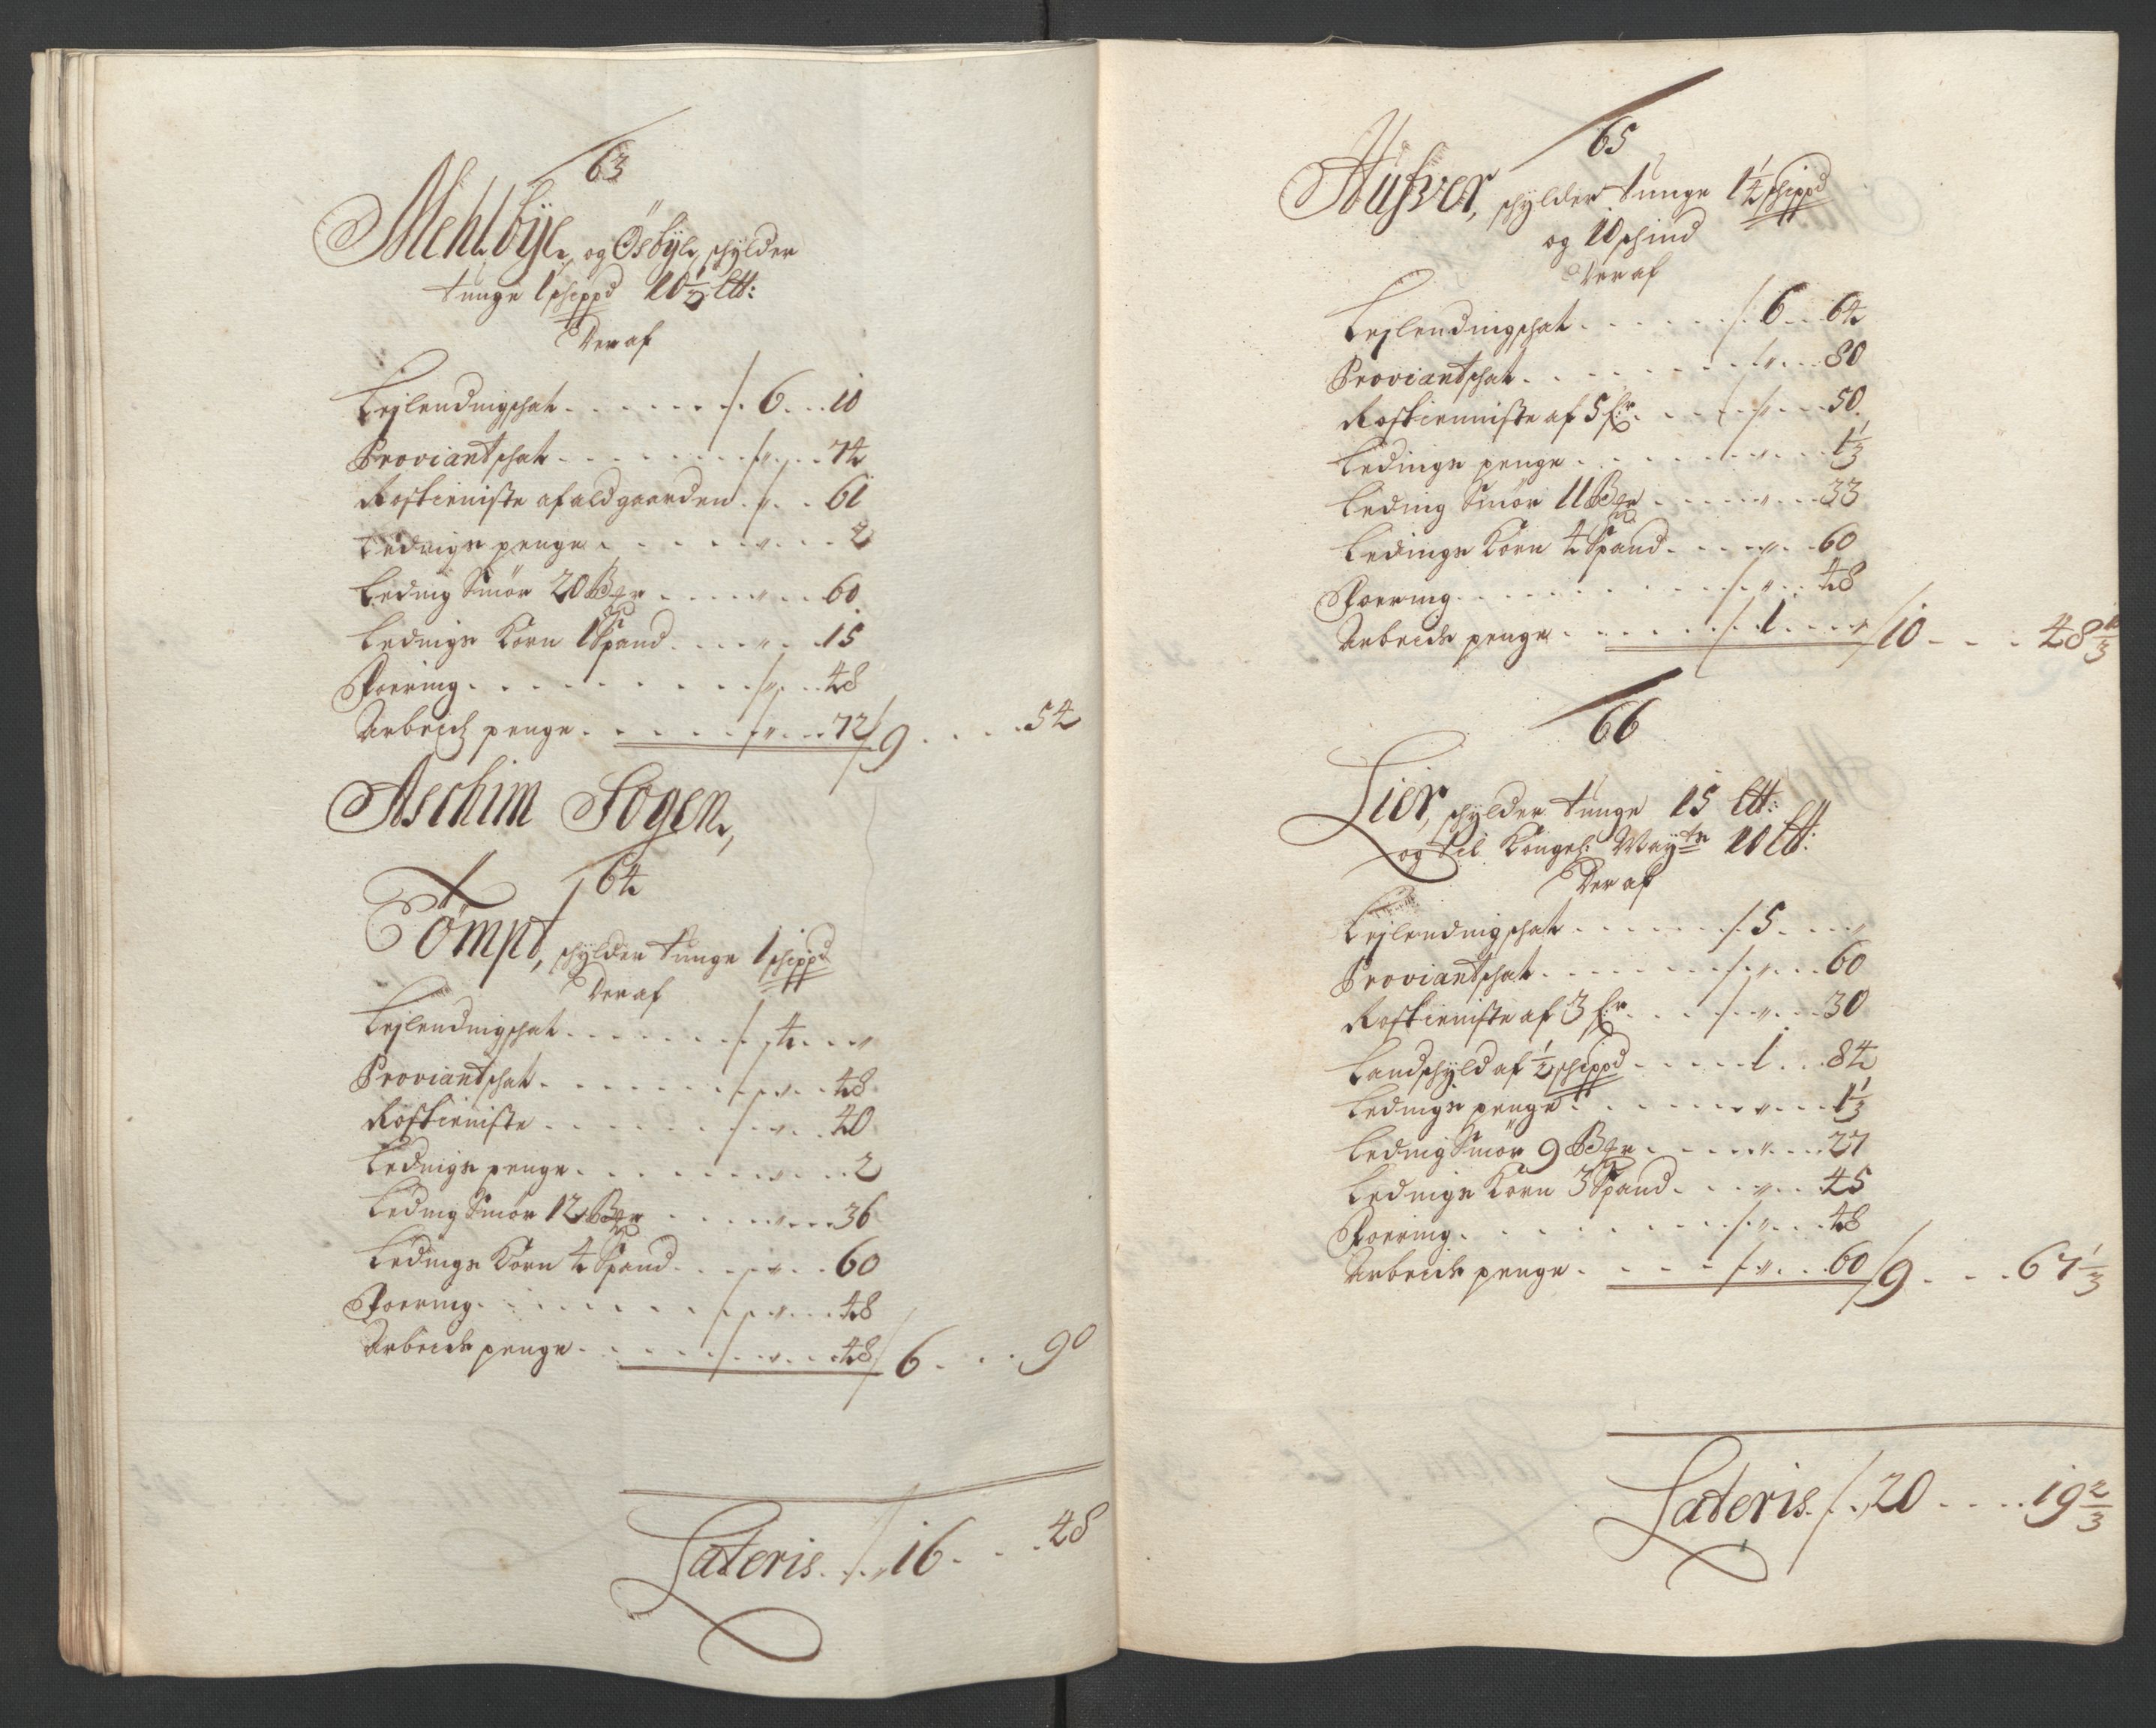 63
Mehlbÿe, og Ösbÿe, schylder
tunge 1 schippd 10½ Lt:
Der af
Lejlendingschat . . . . . . . /. 6 . . . 10
Proviantschat . . . . . . . . /. „ . . . 74
Rostieniste af ald gaarden . /. „ . . 61
Ledings penge . . . . . . . „ . . . 2
Leding Smör 20 Bpr . . . . . „ . . . 60
Ledings Korn 1 Spand . . . . „ . . 15
Foering . . . . . . . . . . /. „ . . . 48
Arbeids penge . . . . . . . /. „ . . . 72 / 9 . . . . 54
Aschim Sogen,
64
Tömpt, schylder tunge 1 schippd
Der af
Lejlendingschat . . . . . . . /. 4 . . . „
Proviantschat . . . . . . . . /. „ . . 48
Rostieniste . . . . . . . . /. „ . . 40
Ledings penge . . . . . . . „ . . . 2
Leding Smör 12 Bpr . . . . . „ . . . 36
Ledings Korn 4 Spand . . . . „ . . 60
Foering . . . . . . . . . . /. „ . . . 48
Arbeids penge . . . . . . . /. „ . . . 48 / 6 . . . 90
Lateris . /. „ 16 . . . 48
65
Hufver, schylder tunge 1½ schippd
og 10 schind
Der af
Lejlendingschat . . . . . . . /. 6 . . . 64
Proviantschat . . . . . . . . /. „ . . . 80
Rostienniste af 5 fr . . . . /. „ . . . 50
Ledings penge . . . . . . . „ . . . 1⅓
Leding Smör 11 Bpr . . . . . „ . . . 33
Ledings Korn 4 Spand . . . . „ . . 60
Foering . . . . . . . . . . /. „ . . . 48
Arbeids penge . . . . . . . /. 1 . . . „ / 10 . . . . 48⅓
66
Lier, schylder tunge 15 Lt:
og til Kongl: Maÿts 10 Lt:
Der af
Lejlendingschat . . . . . . . /. 5 . . . „
Proviantschat . . . . . . . . /. „ . . . 60
Rostieniste af 3 fr . . . . /. „ . . . 30
Landschyld af ½ schippd . . . . . 1 . . . 84
Ledings penge . . . . . . . „ . . . 1⅓
Leding Smör 9 Bpr . . . . . „ . . . 27
Ledings Korn 3 Spand . . . . „ . . 45
Foering . . . . . . . . . . /. „ . . . 48
Arbeids penge . . . . . . . /. „ . . . 60 / 9 . . . 67⅓
Lateris . /. „ 20 . . . . 19⅔